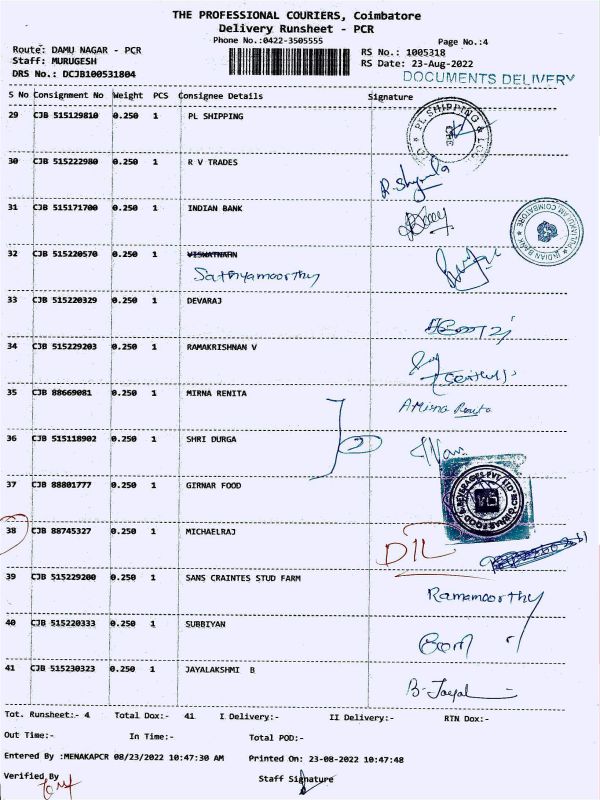 THE PROFESSIONAL COURIERS, Coimbatore
Delivery Runsheet - PCR
Phone No.:0422-3505555 Page No.:4
Route: DAMU NAGAR - PCR RS No.: 1005318
Staff: MURUGESH RS Date: 23-Aug-2022
DRS No.: DCJB100531804 DOCUMENTS DELIVERY
S No Consignment No Weight PCS Consignee Details Signature
29 CJB 515129810 0.250 1 PL SHIPPING
PL SHIPPING &
30 CJB 515222980 0.250 1 R V TRADES
31 CJB 515171700 0.250 1 INDIAN BANK
INDIAN BANK COIMBATORE
32 CJB 515220570 0.250 1 VISWATNARN
Sathyamoorthy
33 CJB 515220329 0.250 1 DEVARAJ
34 CJB 515229203 0.250 1 RAMAKRISHNAN V
35 CJB 88669081 0.250 1 MIRNA RENITA
36 CJB 515118902 0.250 1 SHRI DURGA
2
37 CJB 88801777 0.250 1 GIRNAR FOOD
38 CJB 88745327 0.250 1 MICHAELRAJ
D1L
39 CJB 515229200 0.250 1 SANS CRAINTES STUD FARM
Ramamoorthy
40 CJB 515220333 0.250 1 SUBBIYAN
41 CJB 515230323 0.250 1 JAYALAKSHMI B
B-Jayal
Tot. Runsheet:- 4 Total Dox:- 41 I Delivery:- II Delivery:- RTN Dox:-
Out Time:- In Time:- Total POD:-
Entered By :MENAKAPCR 08/23/2022 10:47:30 AM Printed On: 23-08-2022 10:47:48
Verified By Staff Signature